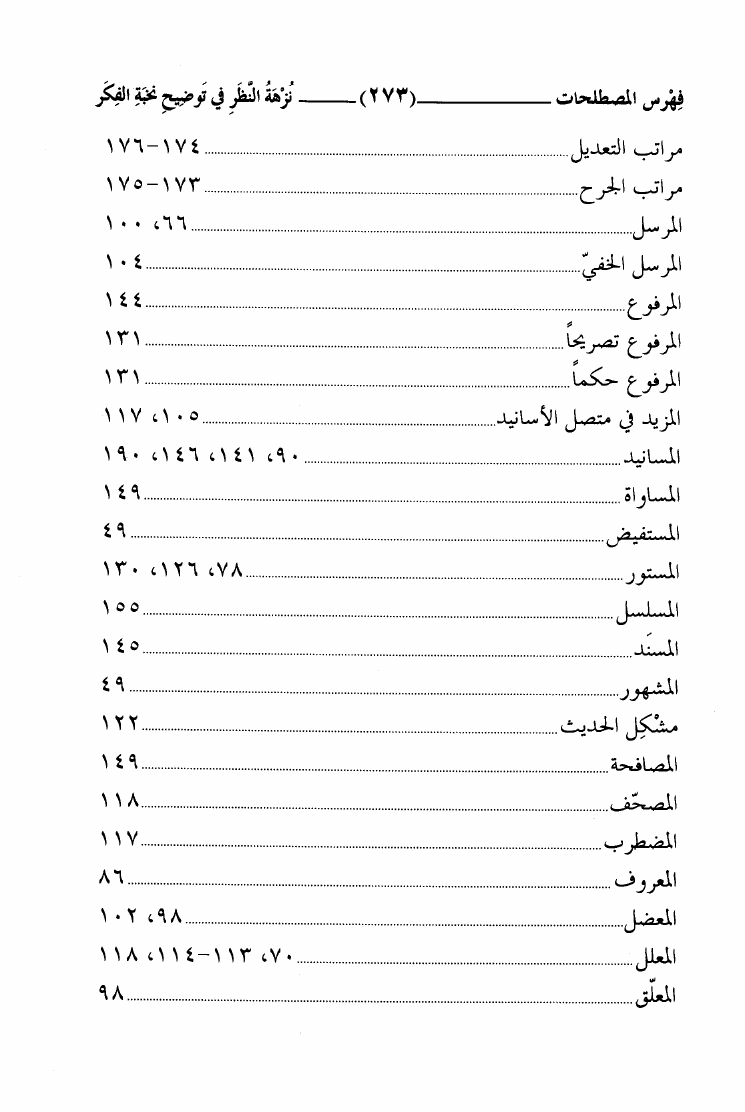 فِهْرس المصطلحات ــــــــــــ (٢٧٣) ــــــ نُزْهَةُ النَّظَرِ في تَوضِيحِ نُخبَةِ الفِكَر
مراتب التعديل ........ ١٧٤-١٧٦
مراتب الجرح ........ ١٧٣-١٧٥
المرسل ........ ٦٦، ١٠٠
المرسل الخفيّ ........ ١٠٤
المرفوع ........ ١٤٤
المرفوع تصريحاً ........ ١٣١
المرفوع حكماً ........ ١٣١
المزيد في متصل الأسانيد ........ ١٠٥، ١١٧
المسانيد ........ ٩٠، ١٤١، ١٤٦، ١٩٠
المساواة ........ ١٤٩
المستفيض ........ ٤٩
المستور ........ ٧٨، ١٢٦، ١٣٠
المسلسل ........ ١٥٥
المسنَد ........ ١٤٥
المشهور ........ ٤٩
مشْكِل الحديث ........ ١٢٢
المصافحة ........ ١٤٩
المصحّف ........ ١١٨
المضطرب ........ ١١٧
المعروف ........ ٨٦
المعضل ........ ٩٨، ١٠٢
المعلل ........ ٧٠، ١١٣-١١٤، ١١٨
المعلّق ........ ٩٨